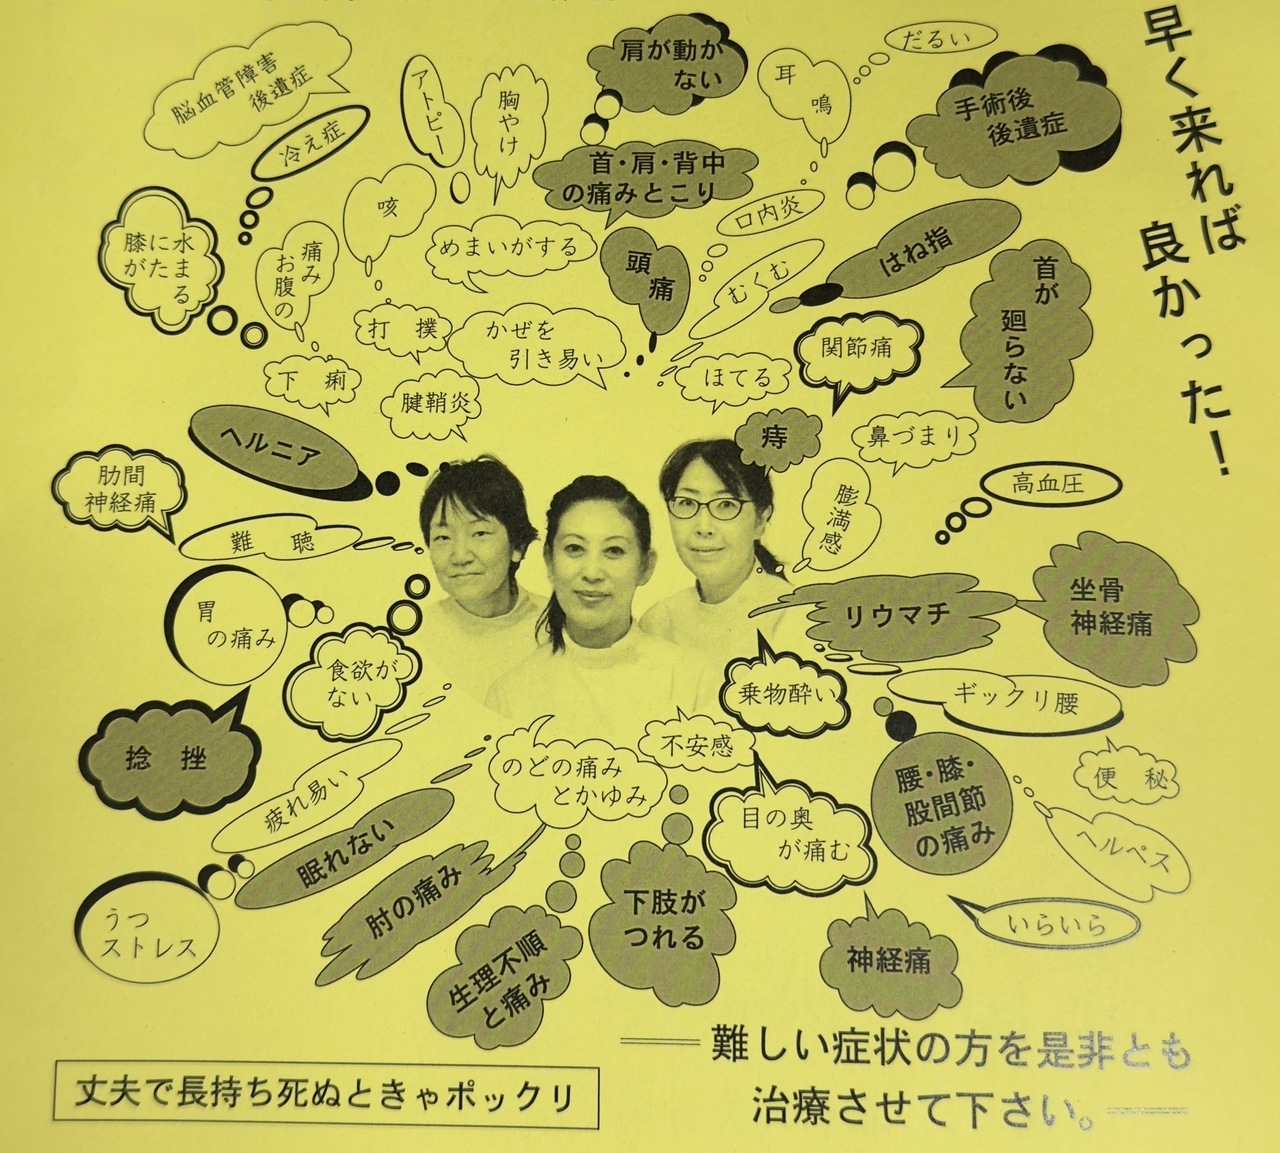 早く来れば
良かった！
脳血管障害
後遺症
冷え症
アトピー
胸やけ
肩が動か
ない
耳鳴
だるい
手術後
後遺症
首・肩・背中
の痛みとこり
咳
口内炎
膝に水
がたまる
お腹の
痛み
めまいがする
頭痛
むくむ
はね指
首が
廻らない
打撲
かぜを
引き易い
関節痛
下痢
腱鞘炎
ほてる
痔
鼻づまり
ヘルニア
肋間
神経痛
膨満感
高血圧
難聴
胃
の痛み
食欲が
ない
リウマチ
坐骨
神経痛
乗物酔い
ギックリ腰
捻挫
疲れ易い
のどの痛み
とかゆみ
不安感
目の奥
が痛む
腰・膝・
股間節
の痛み
便秘
ヘルペス
眠れない
肘の痛み
うつ
ストレス
生理不順
と痛み
下肢が
つれる
神経痛
いらいら
難しい症状の方を是非とも
治療させて下さい。
丈夫で長持ち死ぬときゃポックリ